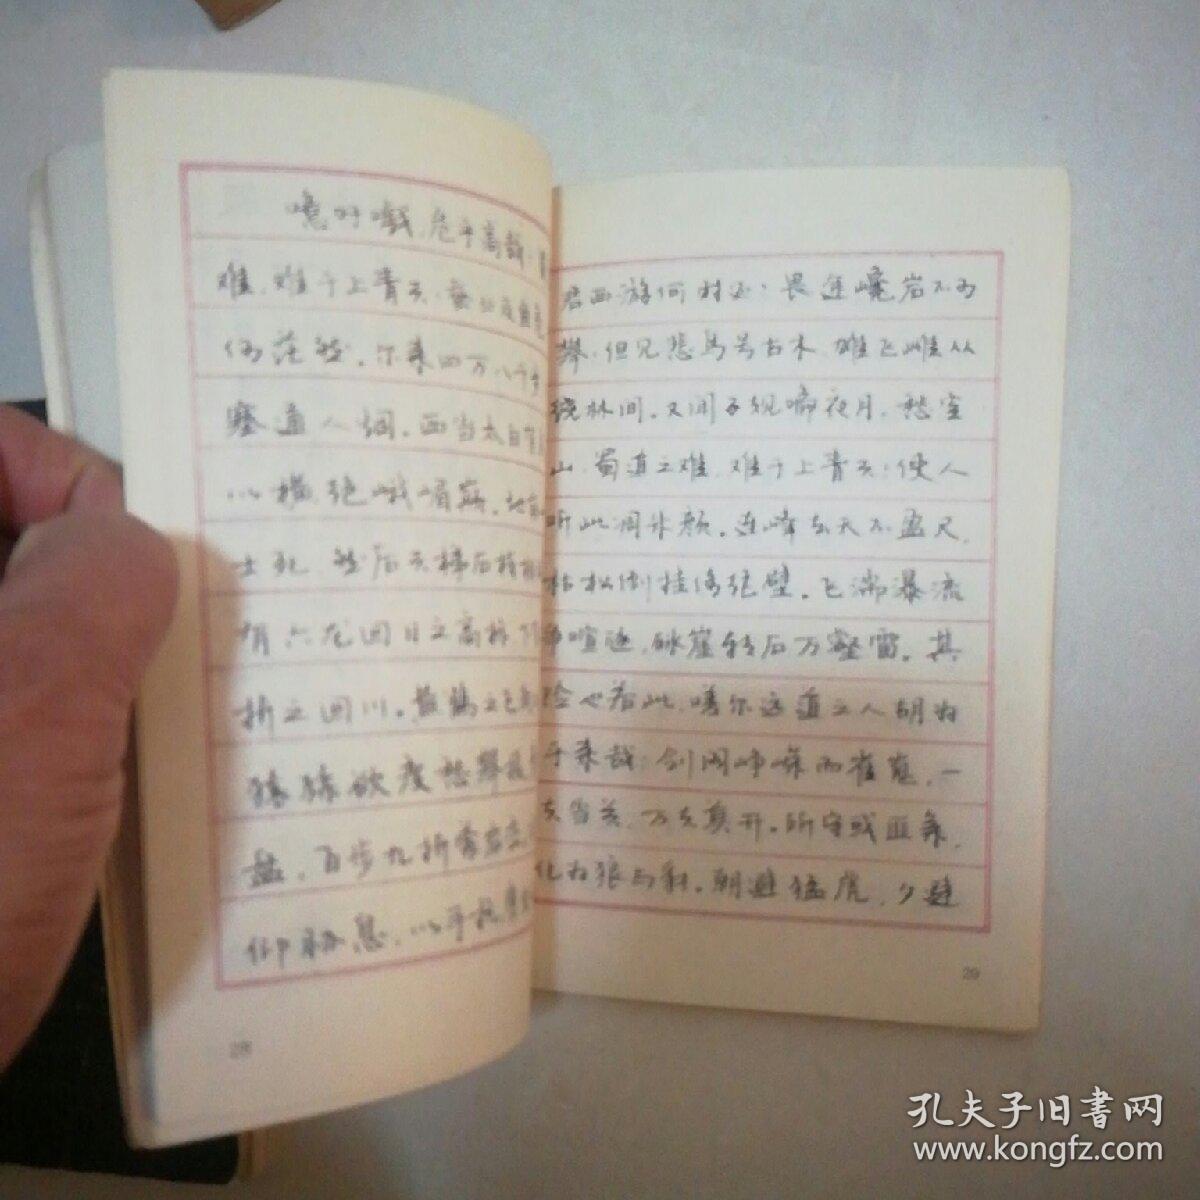 噫吁嚱，危乎高哉！
难，难于上青天，蚕丛及鱼凫
何茫然，尔来四万八千
塞通人烟。西当太白有
以横绝峨嵋巅，地崩
士死，然后天梯石栈
有六龙回日之高标，下
折之回川。黄鹤之飞
猿猱欲度愁攀援
盘，百步九折萦岩峦，
仰胁息，以手抚膺
28
君西游何时还？畏途巉岩不可
攀，但见悲鸟号古木，雄飞雌从
绕林间。又闻子规啼夜月，愁空
山，蜀道之难，难于上青天，使人
听此凋朱颜。连峰去天不盈尺，
枯松倒挂倚绝壁。飞湍瀑流
争喧豗，砯崖转石万壑雷。其
险也若此，嗟尔远道之人胡为
乎来哉！剑阁峥嵘而崔嵬，一
夫当关，万夫莫开。所守或匪亲，
化为狼与豺。朝避猛虎，夕避
29
孔夫子旧書网
www.kongfz.com